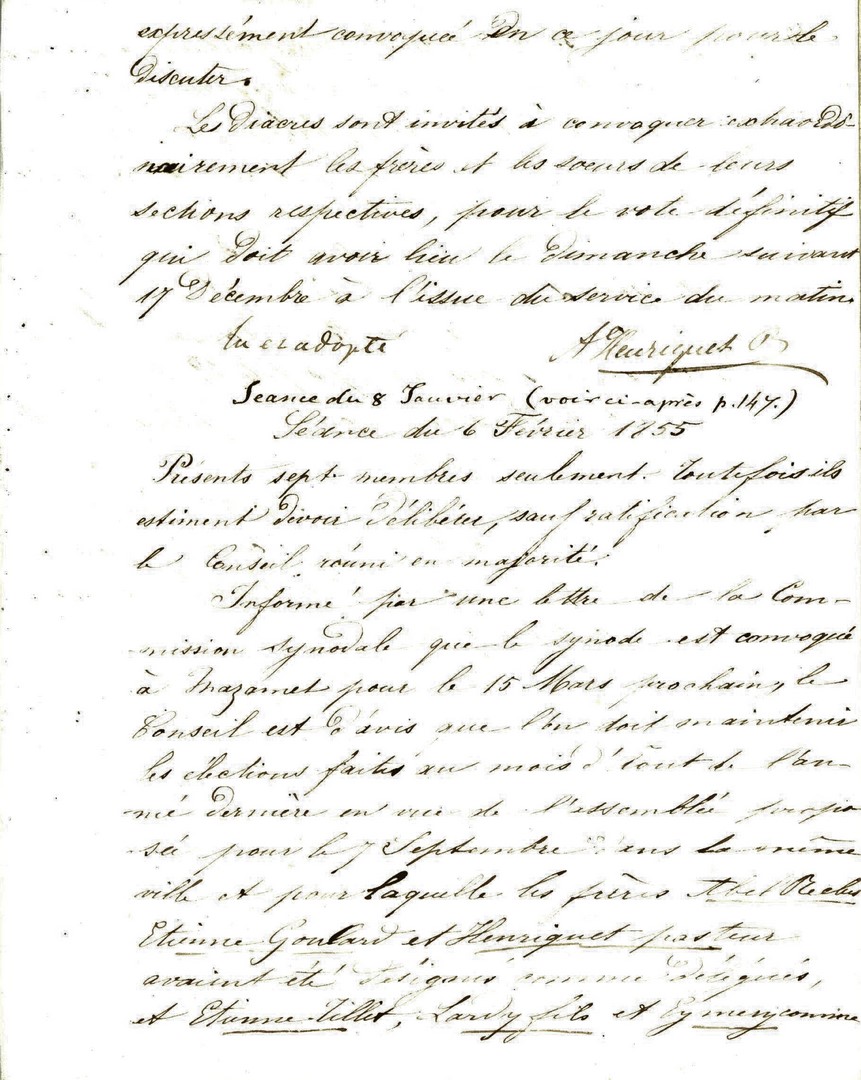 expressément convoqué en ce jour pour le
discuter.
Les Diacres sont invités à convoquer extraordi-
nairement les frères et les soeurs de leurs
sections respectives, pour le vote définitif
qui doit avoir lieu le Dimanche suivant
17 Décembre à l'issue du service du matin.
lu et adopté A Henriquet
Seance du 8 Janvier (voir ci-après p. 147.)
Séance du 6 Février 1855
Présents sept membres seulement. Toutefois ils
estiment devoir délibérer, sauf ratification par
le Conseil réuni en majorité.
Informé par une lettre de la Com-
mission synodale que le synode est convoqué
à Mazamet pour le 15 Mars prochain, le
Conseil est d'avis que l'on doit maintenir
les élections faites au mois d'Aout de l'an-
née dernière en vue de l'assemblée propo
sée pour le 7 Septembre dans la même
ville et pour laquelle les frères Abel Reclus
Etienne Goulard et Henriquet pasteur
avaient été désignés comme Délégués,
et Etienne Tillet, Lardy fils et Eymery comme